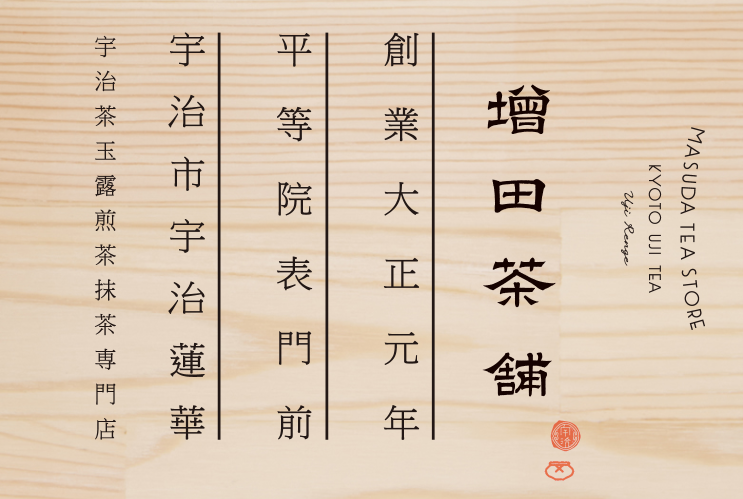 MASUDA TEA STORE
KYOTO UJI TEA
Uji Renge
増田茶舗
創業大正元年
平等院表門前
宇治市宇治蓮華
宇治茶玉露煎茶抹茶専門店